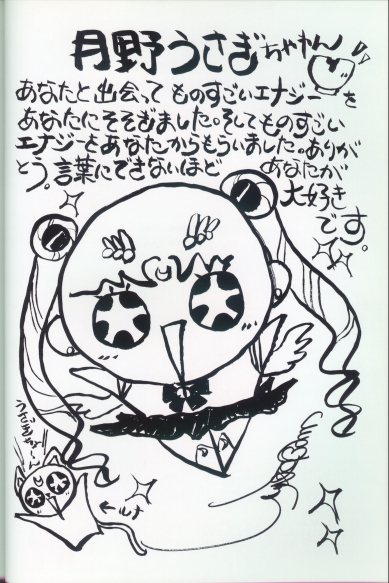 月野うさぎちゃわん
あなたと出会って ものすごいエナジーを
あなたにそそぎました。そしてものすごい
エナジーとあなたからもらいました。ありが
とう。言葉にできないほど あなたが
大好き
です。
うさぎちゃ〜ん
←ルナ